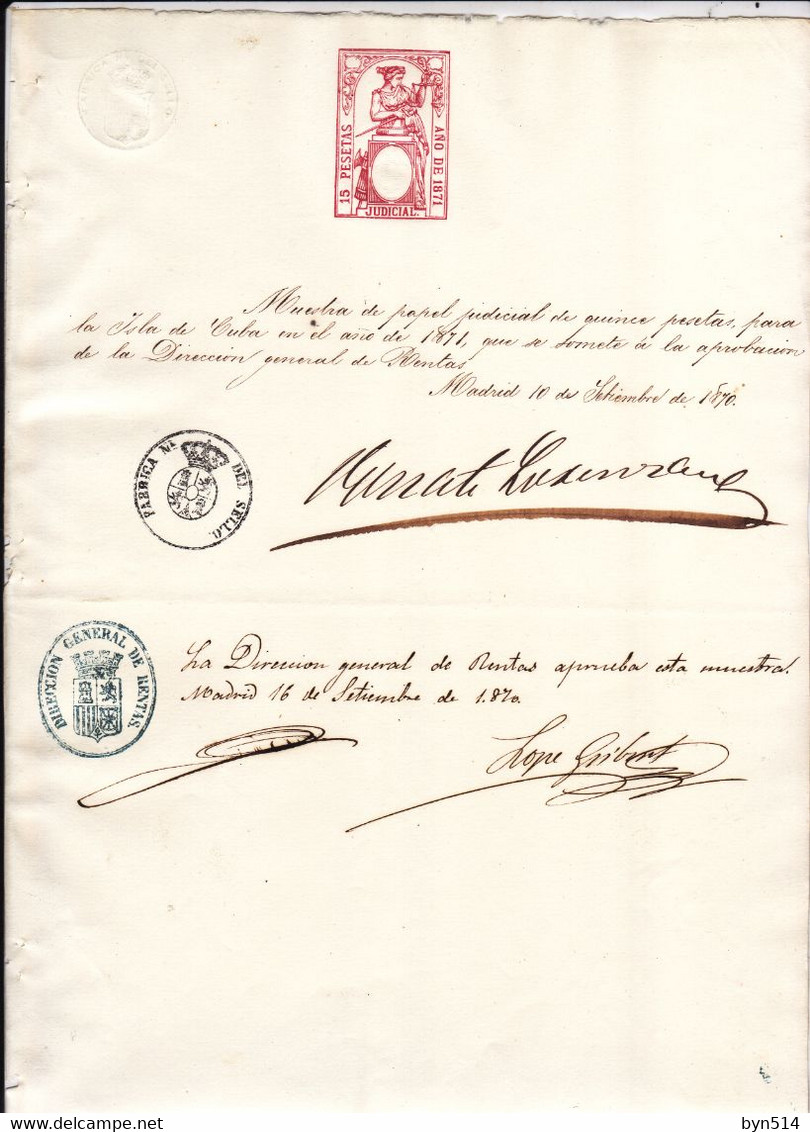 15 PESETAS
AÑO DE 1871
JUDICIAL.
Muestra de papel judicial de quince pesetas, para
la Isla de Cuba en el año de 1871, que se somete á la aprobacion
de la Direccion general de Rentas
Madrid 10 de Setiembre de 1870.
FABRICA Nl. DEL SELLO.
DIRECCION GENERAL DE RENTAS.
La Direccion general de Rentas aprueba esta muestra.
Madrid 16 de Setiembre de 1.870.
Lope Gisbert
byn514